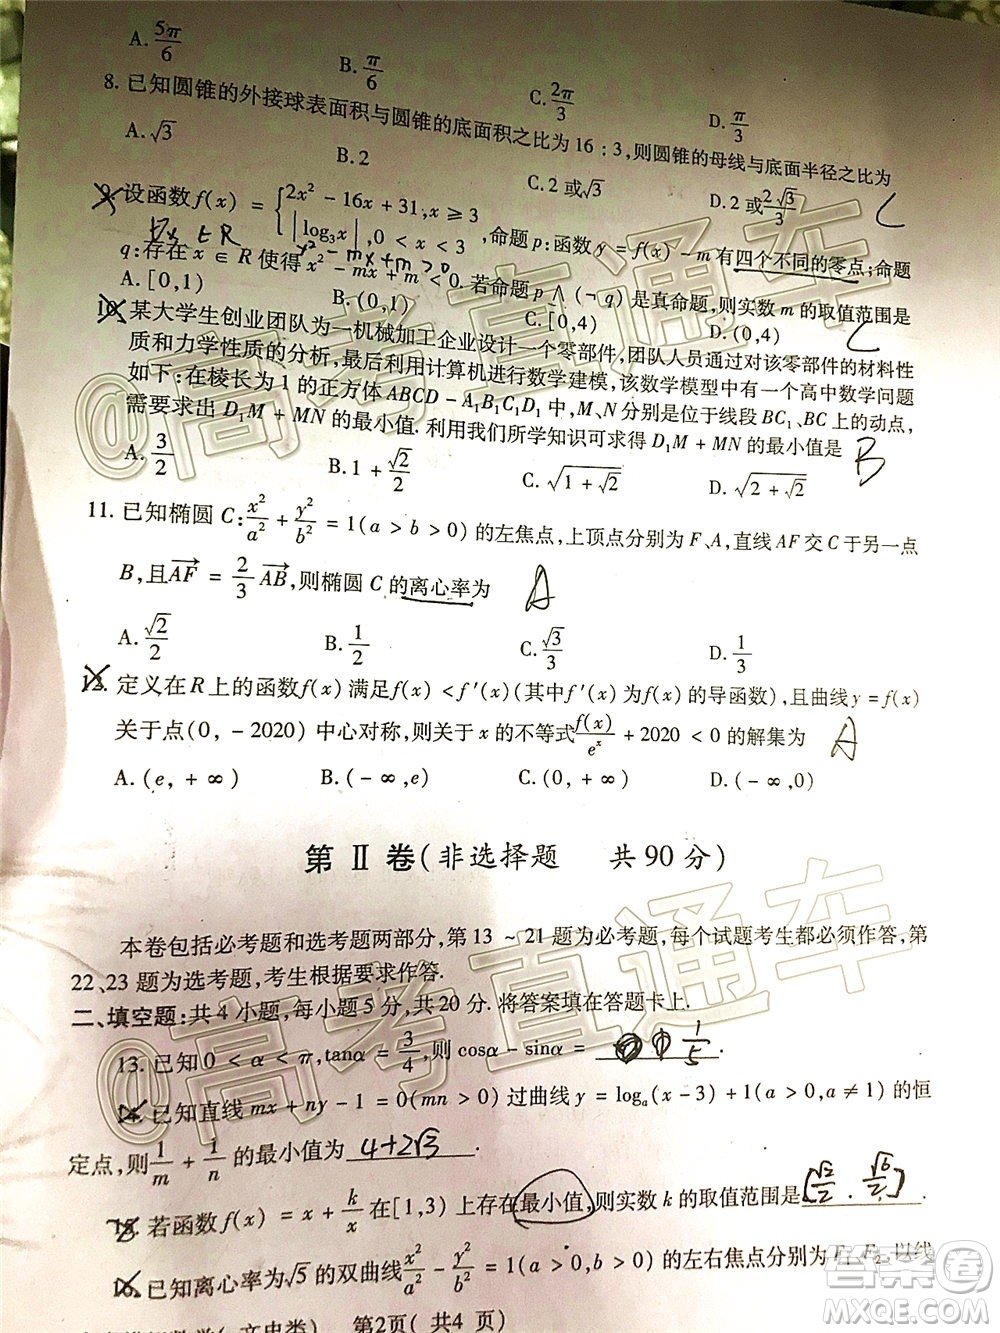 A. 5π/6 B. π/6 C. 2π/3 D. π/3
8. 已知圆锥的外接球表面积与圆锥的底面积之比为 16 : 3,则圆锥的母线与底面半径之比为
A. √3 B. 2 C. 2 或√3 D. 2 或 2√3/3 C
9. 设函数 f(x) = { 2x² - 16x + 31, x ≥ 3
|log₃x|, 0 < x < 3 ,命题 p:函数 y = f(x) - m 有四个不同的零点;命题
∀x ∈ R x² - mx + m ≥ 0
q:存在 x ∈ R 使得 x² - mx + m < 0. 若命题 p ∧ (¬ q) 是真命题,则实数 m 的取值范围是
A. [0,1) B. (0,1) C. [0,4) D. (0,4) C
10. 某大学生创业团队为一机械加工企业设计一个零部件,团队人员通过对该零部件的材料性
质和力学性质的分析,最后利用计算机进行数学建模,该数学模型中有一个高中数学问题
如下:在棱长为 1 的正方体 ABCD - A₁B₁C₁D₁ 中,M、N 分别是位于线段 BC₁、BC 上的动点,
需要求出 D₁M + MN 的最小值. 利用我们所学知识可求得 D₁M + MN 的最小值是 B
A. 3/2 B. 1 + √2/2 C. √(1 + √2) D. √(2 + √2)
11. 已知椭圆 C: x²/a² + y²/b² = 1(a > b > 0) 的左焦点,上顶点分别为 F、A,直线 AF 交 C 于另一点
B,且AF = 2/3 AB,则椭圆 C 的离心率为 A
A. √2/2 B. 1/2 C. √3/3 D. 1/3
12. 定义在 R 上的函数 f(x) 满足 f(x) < f′(x)(其中 f′(x) 为 f(x) 的导函数),且曲线 y = f(x)
关于点(0, - 2020) 中心对称,则关于 x 的不等式 f(x)/eˣ + 2020 < 0 的解集为 A
A. (e, + ∞) B. (- ∞,e) C. (0, + ∞) D. (- ∞,0)
第 Ⅱ 卷(非选择题 共 90 分)
本卷包括必考题和选考题两部分,第 13 ~ 21 题为必考题,每个试题考生都必须作答,第
22、23 题为选考题,考生根据要求作答.
二、填空题:共 4 小题,每小题 5 分,共 20 分. 将答案填在答题卡上.
13. 已知 0 < α < π,tanα = 3/4,则 cosα - sinα = 1/5
14. 已知直线 mx + ny - 1 = 0(mn > 0) 过曲线 y = logₐ(x - 3) + 1(a > 0,a ≠ 1) 的恒
定点,则 1/m + 1/n 的最小值为 4+2√3 .
15. 若函数 f(x) = x + k/x 在 [1,3) 上存在最小值,则实数 k 的取值范围是 [√2/2 , √6/2] .
16. 已知离心率为√5 的双曲线 x²/a² - y²/b² = 1(a > 0,b > 0) 的左右焦点分别为 F₁、F₂,以线
(文史类) 第2页( 共4 页)
@高考直通车
@高考直通车
答案圈
MXQE.COM